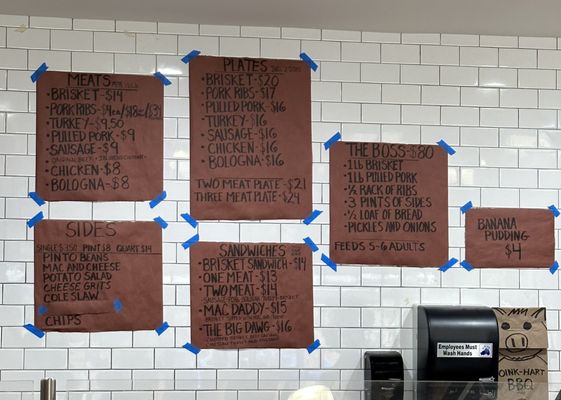 MEATS PER ½LB
BRISKET-$14
PORK RIBS-$4ea/$18½/$31
TURKEY-$9.50
PULLED PORK-$9
SAUSAGE-$9
CHICKEN-$8
BOLOGNA-$8
SIDES
SINGLE $3.50 PINT $8 QUART $14
PINTO BEANS
MAC AND CHEESE
POTATO SALAD
CHEESE GRITS
COLE SLAW
CHIPS
PLATES INCL 2 SIDES
BRISKET-$20
PORK RIBS-$17
PULLED PORK-$16
TURKEY-$16
SAUSAGE-$16
CHICKEN-$16
BOLOGNA-$16
TWO MEAT PLATE-$21
THREE MEAT PLATE-$24
SANDWICHES
BRISKET SANDWICH-$14
ONE MEAT-$13
TWO MEAT-$14
MAC DADDY-$15
THE BIG DAWG-$16
THE BOSS-$80
1 LB BRISKET
1 LB PULLED PORK
½ RACK OF RIBS
3 PINTS OF SIDES
½ LOAF OF BREAD
PICKLES AND ONIONS
FEEDS 5-6 ADULTS
BANANA
PUDDING
$4
Employees Must
Wash Hands
OINK-HART
BBQ